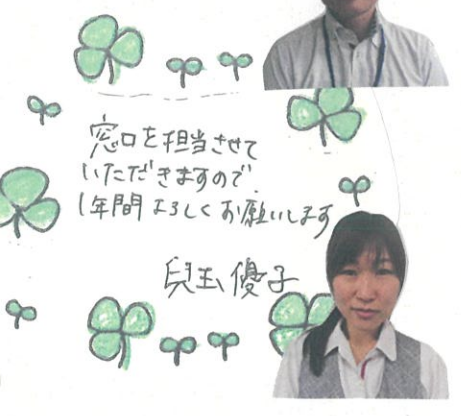 窓口を担当させて
いただきますので
1年間よろしくお願いします
兒玉優子